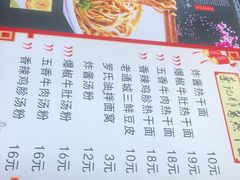 炸酱热干面 10元
爆椒牛肚热干面 19元
五香牛肉热干面 18元
香辣鸡胗热干面 18元
老通城三鲜豆皮 10元
罗氏油拌面窝 3元
炸酱汤粉 12元
爆椒牛肚汤粉
五香牛肉汤粉 16元
香辣鸡胗汤粉 16元